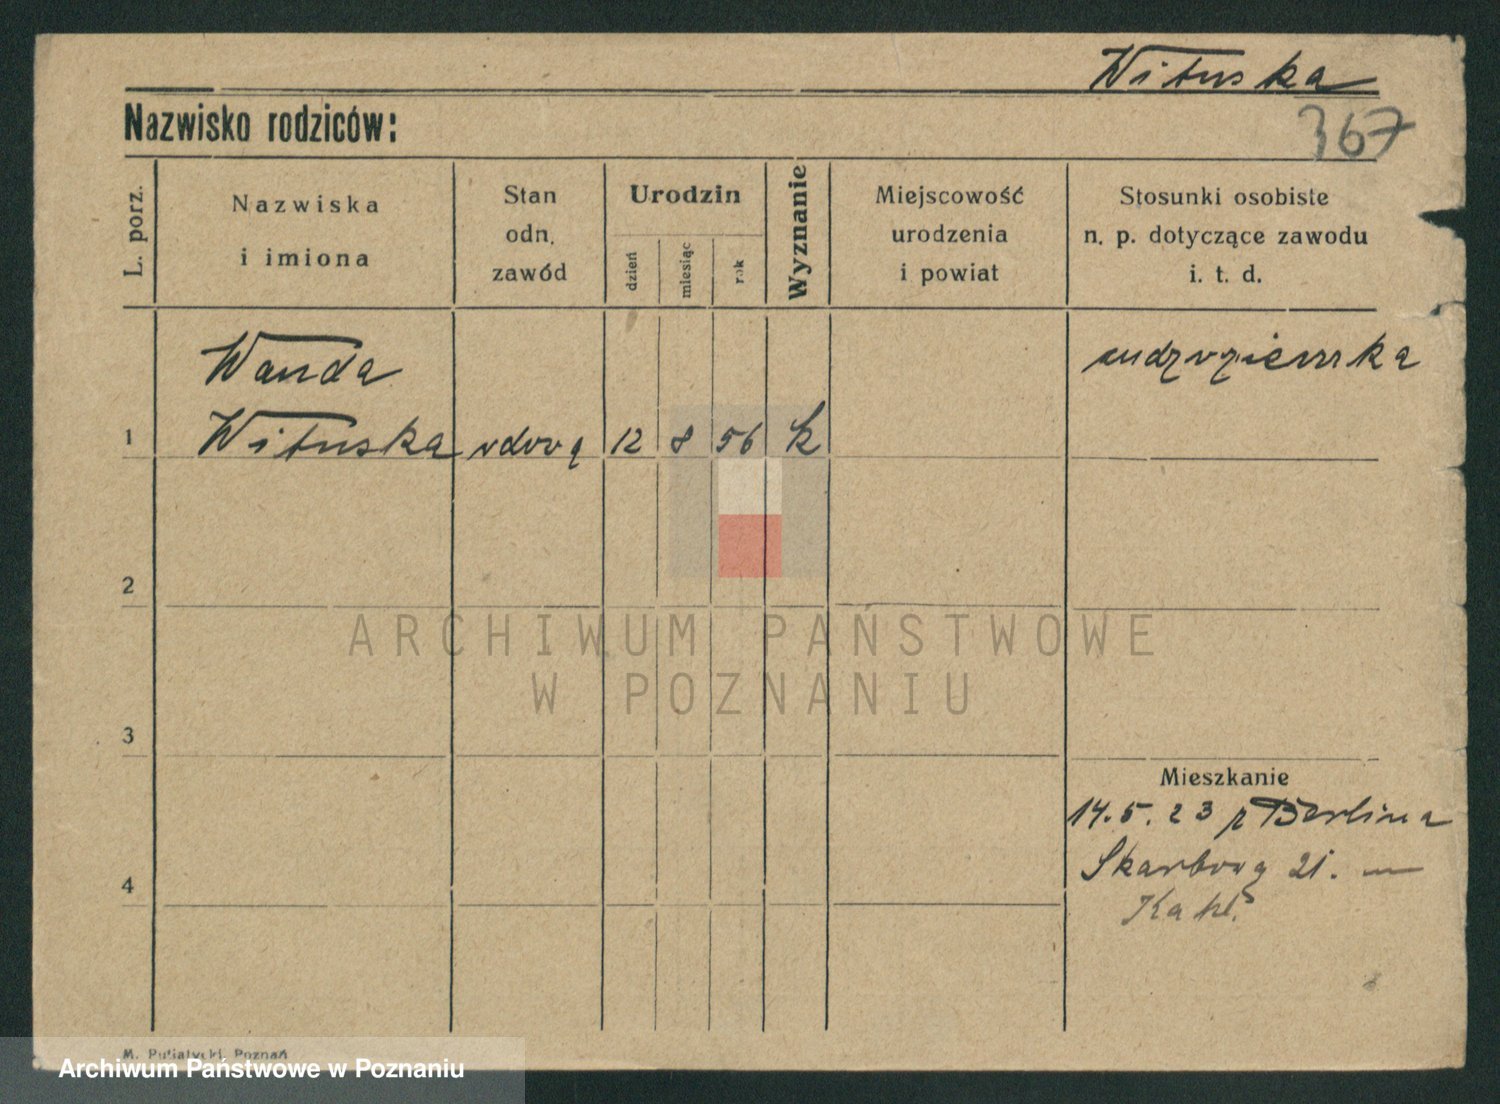 Wituska
367
Nazwisko rodziców:
L. porz.
Nazwiska
i imiona
Stan
odn.
zawód
Urodzin
dzień
miesiąc
rok
Wyznanie
Miejscowość
urodzenia
i powiat
Stosunki osobiste
n. p. dotyczące zawodu
i. t. d.
Wanda
1 Wituska 12 8 56 k
2
3
4
Mieszkanie
14.5.23 z Berlina
21. —
ARCHIWUM PAŃSTWOWE
W POZNANIU
M. Putiatycki, Poznań
Archiwum Państwowe w Poznaniu